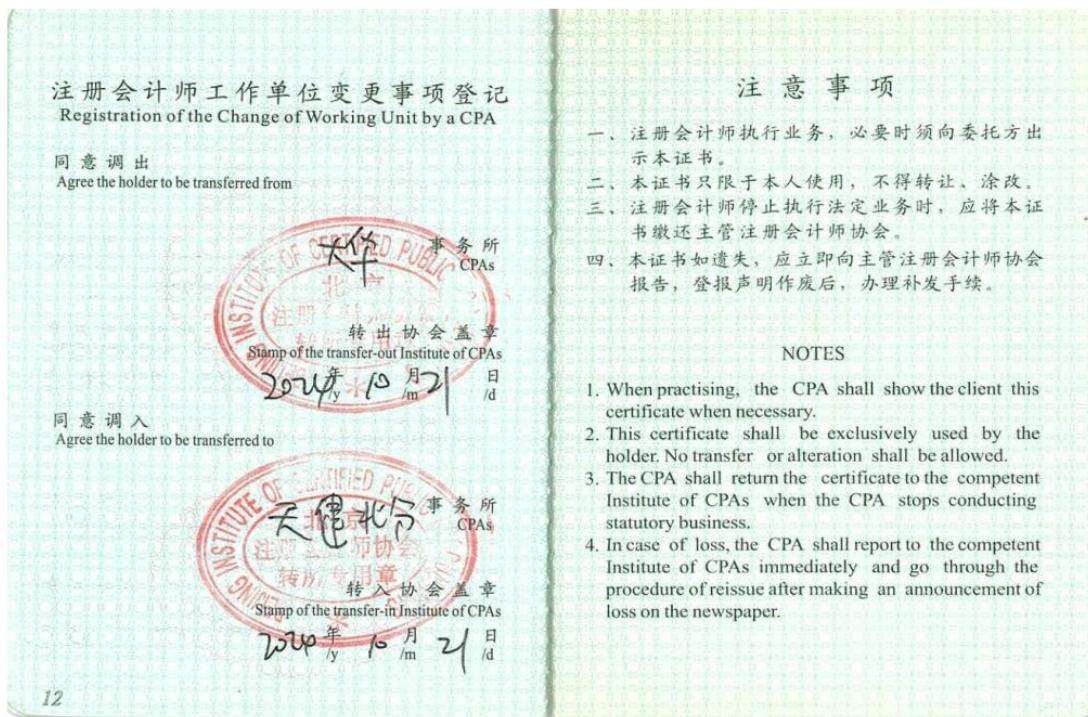 注册会计师工作单位变更事项登记
Registration of the Change of Working Unit by a CPA
同意调出
Agree the holder to be transferred from
大华 事务所
CPAs
转出协会盖章
Stamp of the transfer-out Institute of CPAs
2024年 10月 21日
/y /m /d
同意调入
Agree the holder to be transferred to
天健北分 事务所
CPAs
北京
注册会计师协会
转所专用章
转入协会盖章
Stamp of the transfer-in Institute of CPAs
2024年 10月 21日
/y /m /d
12
注意事项
一、注册会计师执行业务，必要时须向委托方出
示本证书。
二、本证书只限于本人使用，不得转让、涂改。
三、注册会计师停止执行法定业务时，应将本证
书缴还主管注册会计师协会。
四、本证书如遗失，应立即向主管注册会计师协会
报告，登报声明作废后，办理补发手续。
NOTES
1. When practising, the CPA shall show the client this
certificate when necessary.
2. This certificate shall be exclusively used by the
holder. No transfer or alteration shall be allowed.
3. The CPA shall return the certificate to the competent
Institute of CPAs when the CPA stops conducting
statutory business.
4. In case of loss, the CPA shall report to the competent
Institute of CPAs immediately and go through the
procedure of reissue after making an announcement of
loss on the newspaper.